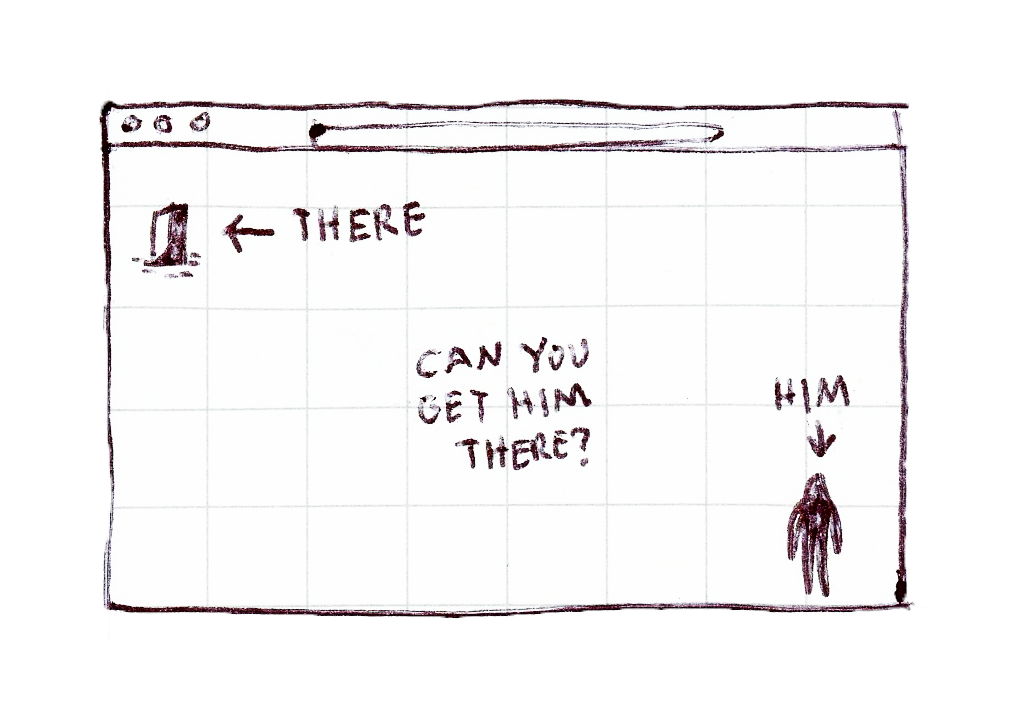 ← THERE
CAN YOU
GET HIM
THERE?
HIM
↓